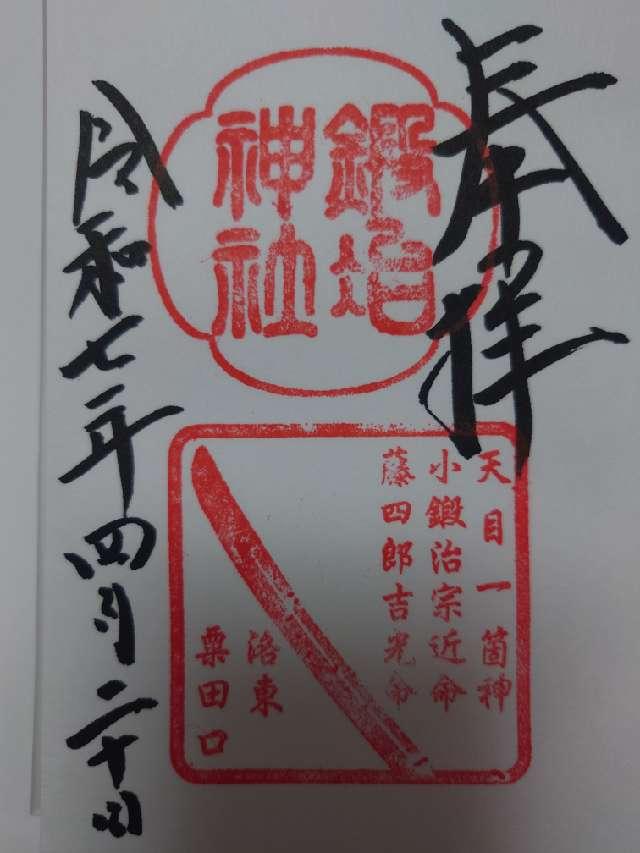 奉拝
鍛冶
神社
天目一箇神
小鍛治宗近命
藤四郎吉光命
洛東
粟田口
令和七年四月二十日